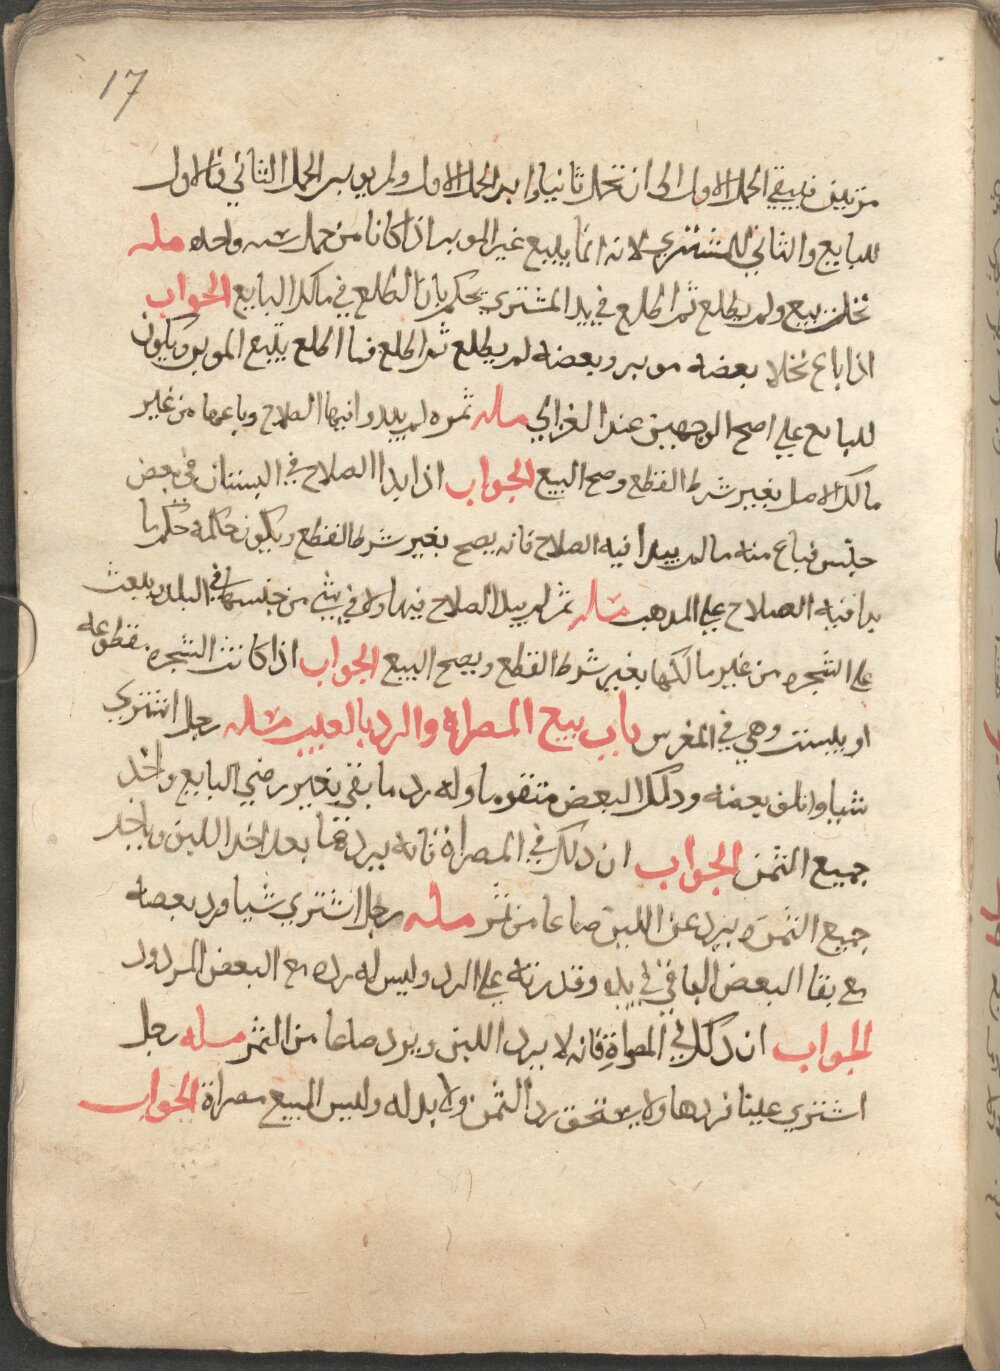 17
مرتين فيبقي الحمل الاول الى ان تحمل ثانيا وابر الحمل الاول ولم يوبر الحمل الثاني فالاول
للبايع والثاني للمشتري لانه انما يتبع غير الموبر اذا كانا من حمل سنه واحده مسله
نخل بيع ولم يطلع ثم اطلع في يد المشتري يحكم بان الطلع في ملك البايع الجواب
اذا باع نخلا بعضه موبر وبعضه لم يطلع ثم اطلع فما اطلع يتبع الموبر ويكون
للبايع علي اصح الوجهين عند الغزالي مسله ثمره لم يبدوا فيها الصلاح وباعها من غير
مالك الاصل بغير شرط القطع وصح البيع الجواب اذا بدا الصلاح في البستان في بعض
جنس فباع منه ما لم يبدا فيه الصلاح فانه يصح بغير شرط القطع ويكون حكمه حكم ما
بدا فيه الصلاح علي المذهب مسله ثمر لم يبدا الصلاح فيها ولا في شي من جنسها في البلد بيعت
علي الشجره من غير مالكها بغير شرط القطع ويصح البيع الجواب اذا كانت الشجره مقطوعه
او يبست وهي في المغرس باب بيع المصراة والرد بالعيب مسله رجل اشتري
شيا واتلف بعضه وذلك البعض متقوما وله رد ما بقي بغير رضي البايع واخذ
جميع الثمن الجواب ان ذلك في المصراة فانه يردها بعد اخذ اللبن وياخذ
جميع الثمن ويرد عن اللبن صاعا من تمر مسله رجل اشتري شيا ورد بعضه
مع بقا البعض الباقي في يده وقدرته علي الرد وليس له رده مع البعض المردود
الجواب ان ذلك في المصراة فانه لا يرد اللبن ويرد صاعا من التمر مسله رجل
اشتري عينا فردها ولا يستحق رد الثمن ولا بدله وليس المبيع مصراة الجواب